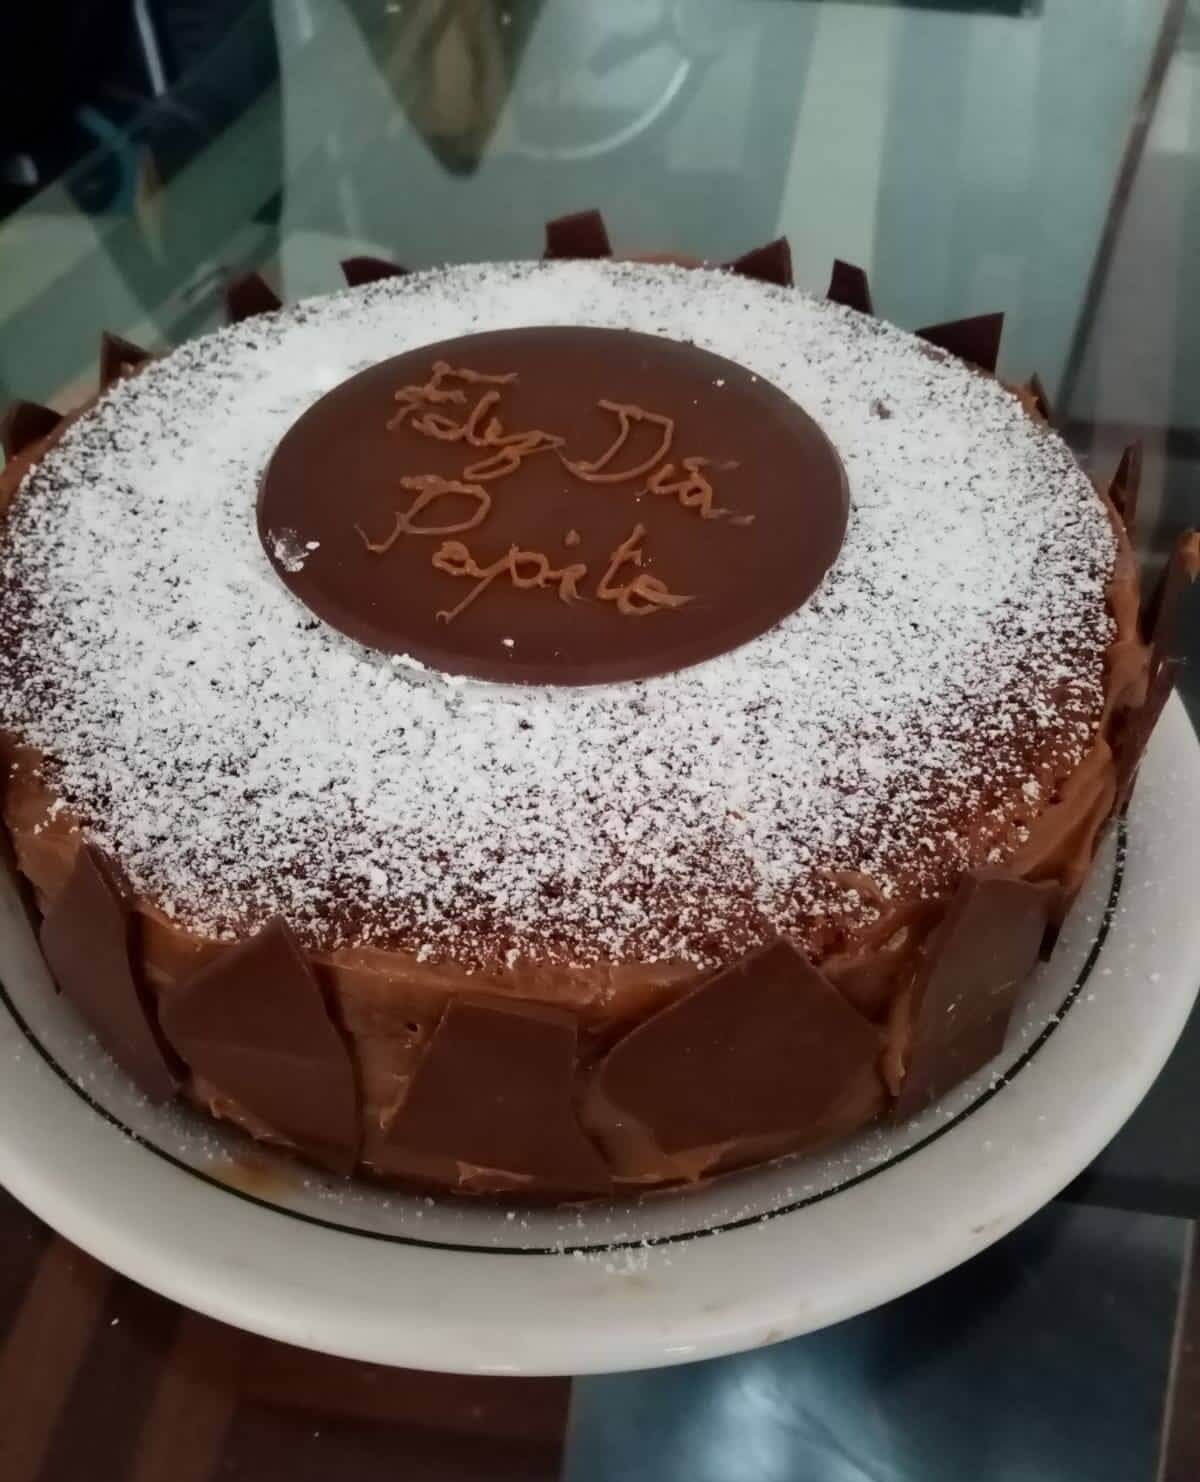 Feliz Día
Papito